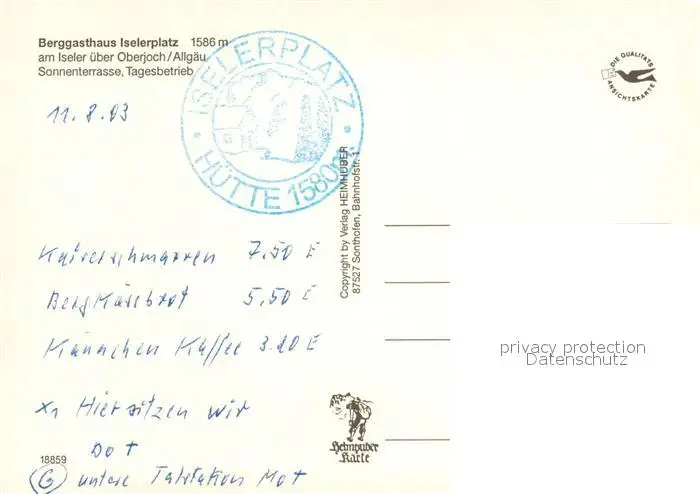 Berggasthaus Iselerplatz 1586 m
am Iseler über Oberjoch/Allgäu
Sonnenterrasse, Tagesbetrieb
ISELERPLATZ
HÜTTE 1580m
DIE QUALITÄTS
ANSICHTSKARTE
11.8.03
Copyright by Verlag HEIMHUBER
87527 Sonthofen, Bahnhofstr. 1
Kaiserschmarren 7.50 E
Bergkäsebrot 5,50 E
Kännchen Kaffee 3.20 E
privacy protection
Datenschutz
x1 Hier sitzen wir
Dot
Heimhuber
Karte
18859
G untere Talstation Mot